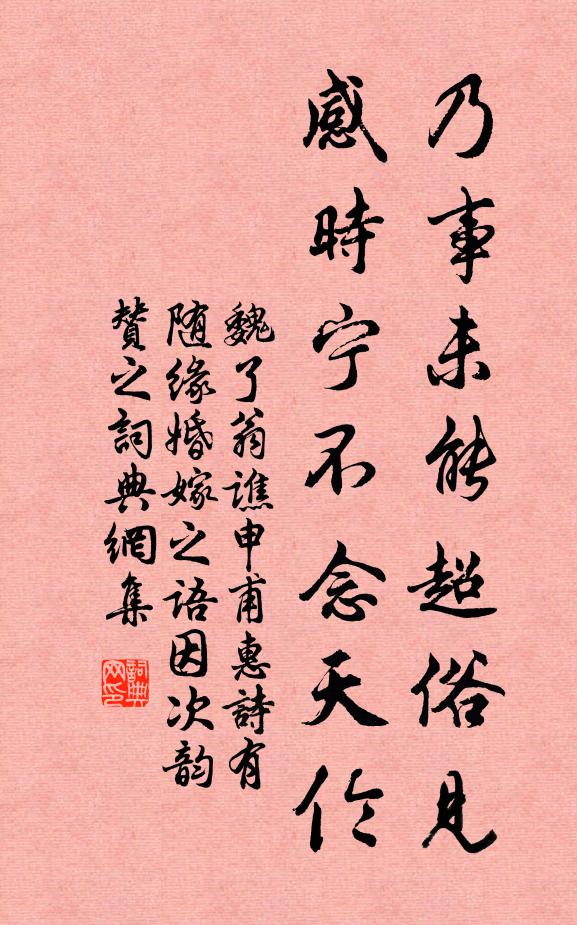 乃事未能超俗见
感時宁不念天伦
魏了翁譙申甫惠詩有
随缘婚嫁之语因次韵
赞之詞典網集
詞典网印